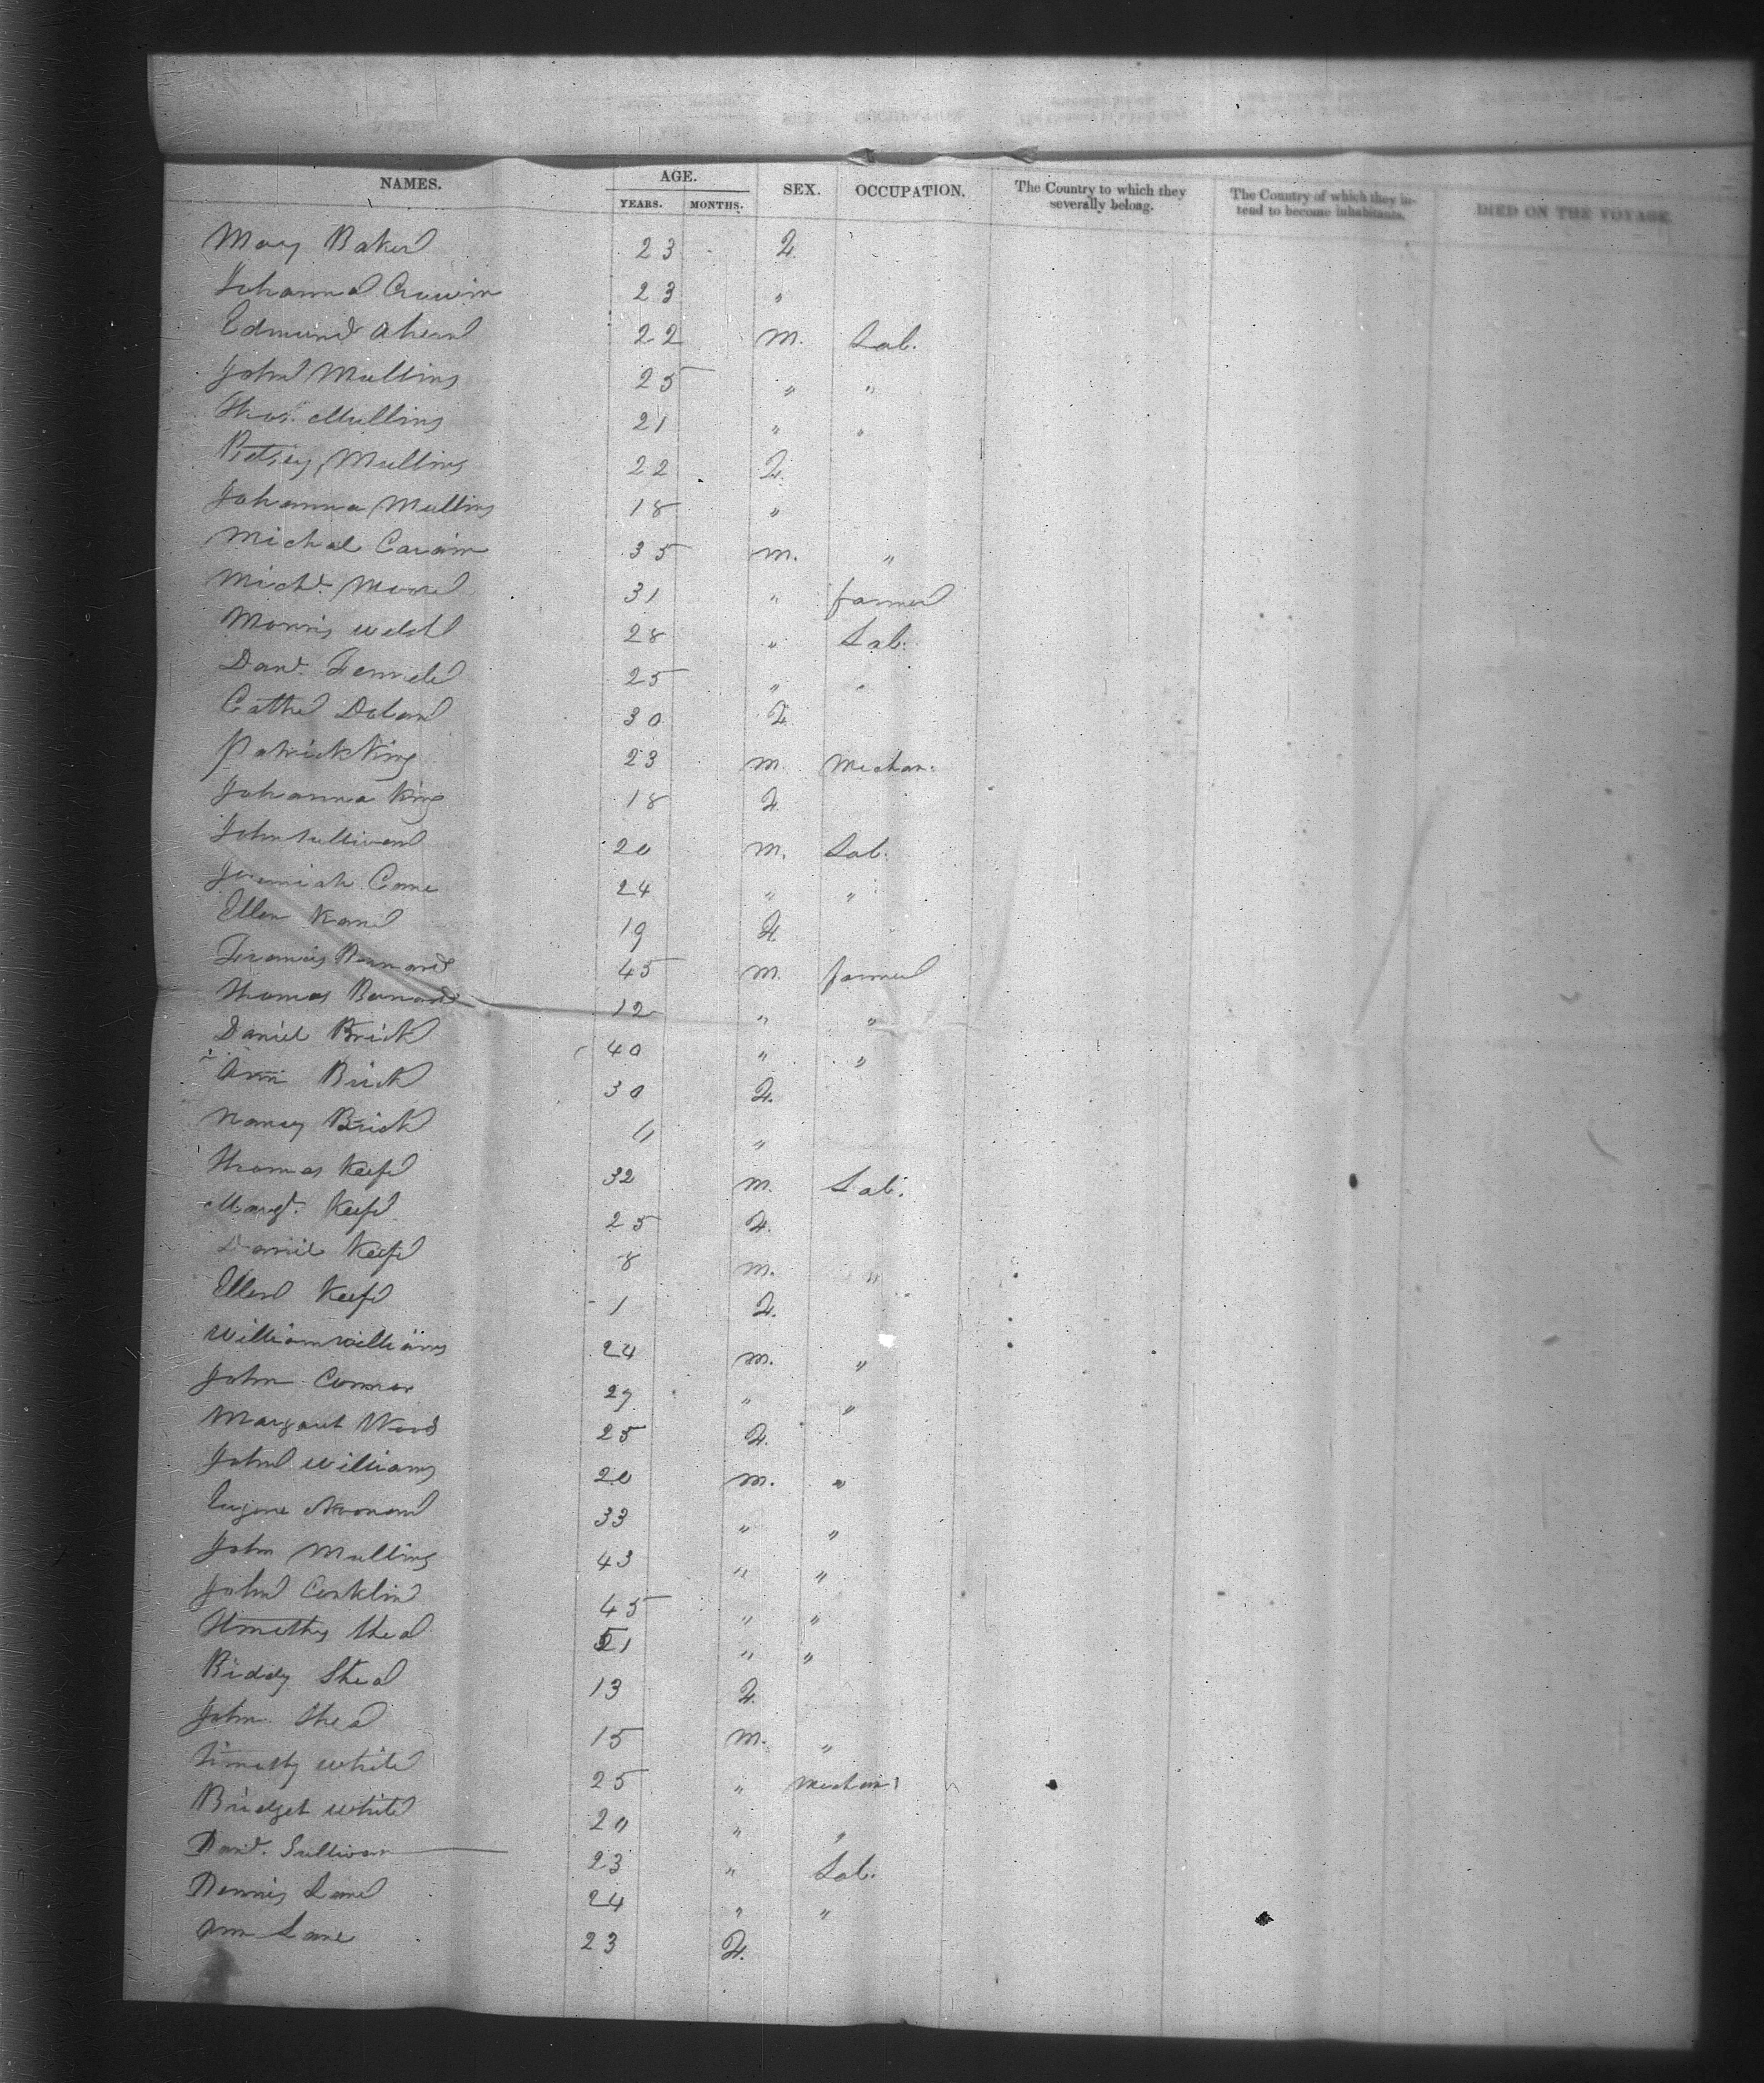 NAMES. AGE. SEX. OCCUPATION. The Country to which they severally belong. The Country of which they intend to become inhabitants. DIED ON THE VOYAGE.
YEARS. MONTHS.
Mary Baker 23 F.
Johanna 23 "
Edmund Ahern 22 M. Lab.
John Mullins 25 " "
Thos. Mullins 21 " "
Betsey Mullins 22 F.
Johanna Mullins 18 "
Michael 35 M. "
Michl. Moore 31 " farmer
Morris Welsh 28 " Lab.
Danl. 25 " "
Cathe 30 F.
Patrick King 23 M. Mechan.
Johanna King 18 F.
John Sullivan 20 M. Lab.
Jeremiah 24 " "
Ellen Kane 19 F.
Francis Barnard 45 M. farmer
Thomas Barnard 12 " "
Daniel Brick 40 " "
Ann Brick 30 F.
Nancy Brick "
Thomas Keefe 32 M. Lab.
Margt. Keefe 25 F.
Daniel Keefe 8 M. "
Ellen Keefe 1 F.
William Williams 24 M. "
John Connor 27 " "
Margaret Wood 25 F.
John Williams 20 M. "
Eugene Noonan 33 " "
John Mullins 43 " "
John Conklin 45 " "
Timothy Shea " "
Biddy Shea 13 F.
John Shea 15 M. "
Timothy White 25 " Mechan.
Bridget White 20 " "
Danl. Sullivan 23 " Lab.
Dennis Lane 24 " "
Ann Lane 23 F.